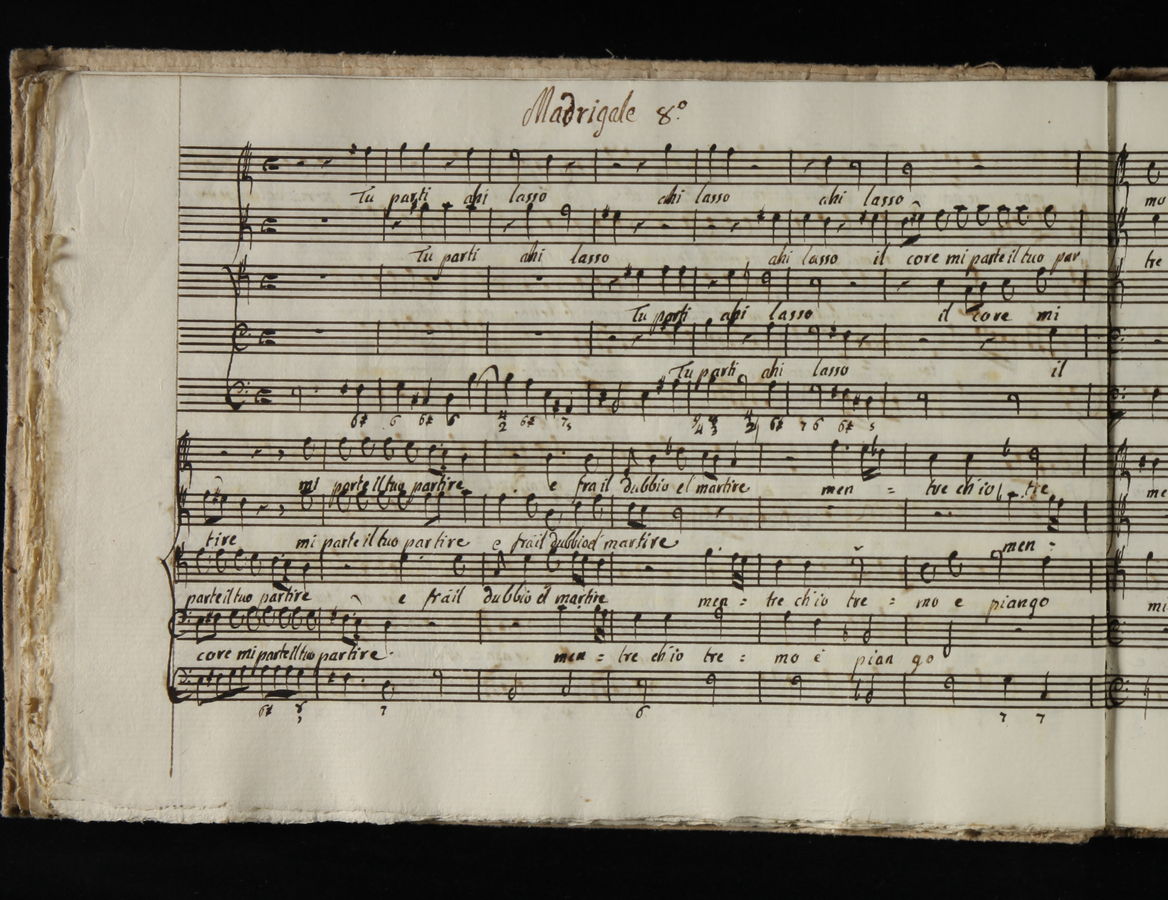 Madrigale 8.º
Tu parti ahi lasso ahi lasso ahi lasso
mo
Tu parti ahi lasso ahi lasso il core mi parte il tuo par
tre
Tu parti ahi lasso il core mi
Tu parti ahi lasso il
6# 6 6# 6
mi parte il tuo partire e fra il dubbio el martire men = tre ch'io tre
me
tire mi parte il tuo partire e fra il dubbio el martire men =
parte il tuo partire e fra il dubbio el martire men = tre ch'io tre = mo e piango
mi
core mi parte il tuo partire men = tre ch'io tre = mo e pian go
6# 7 6 7 7